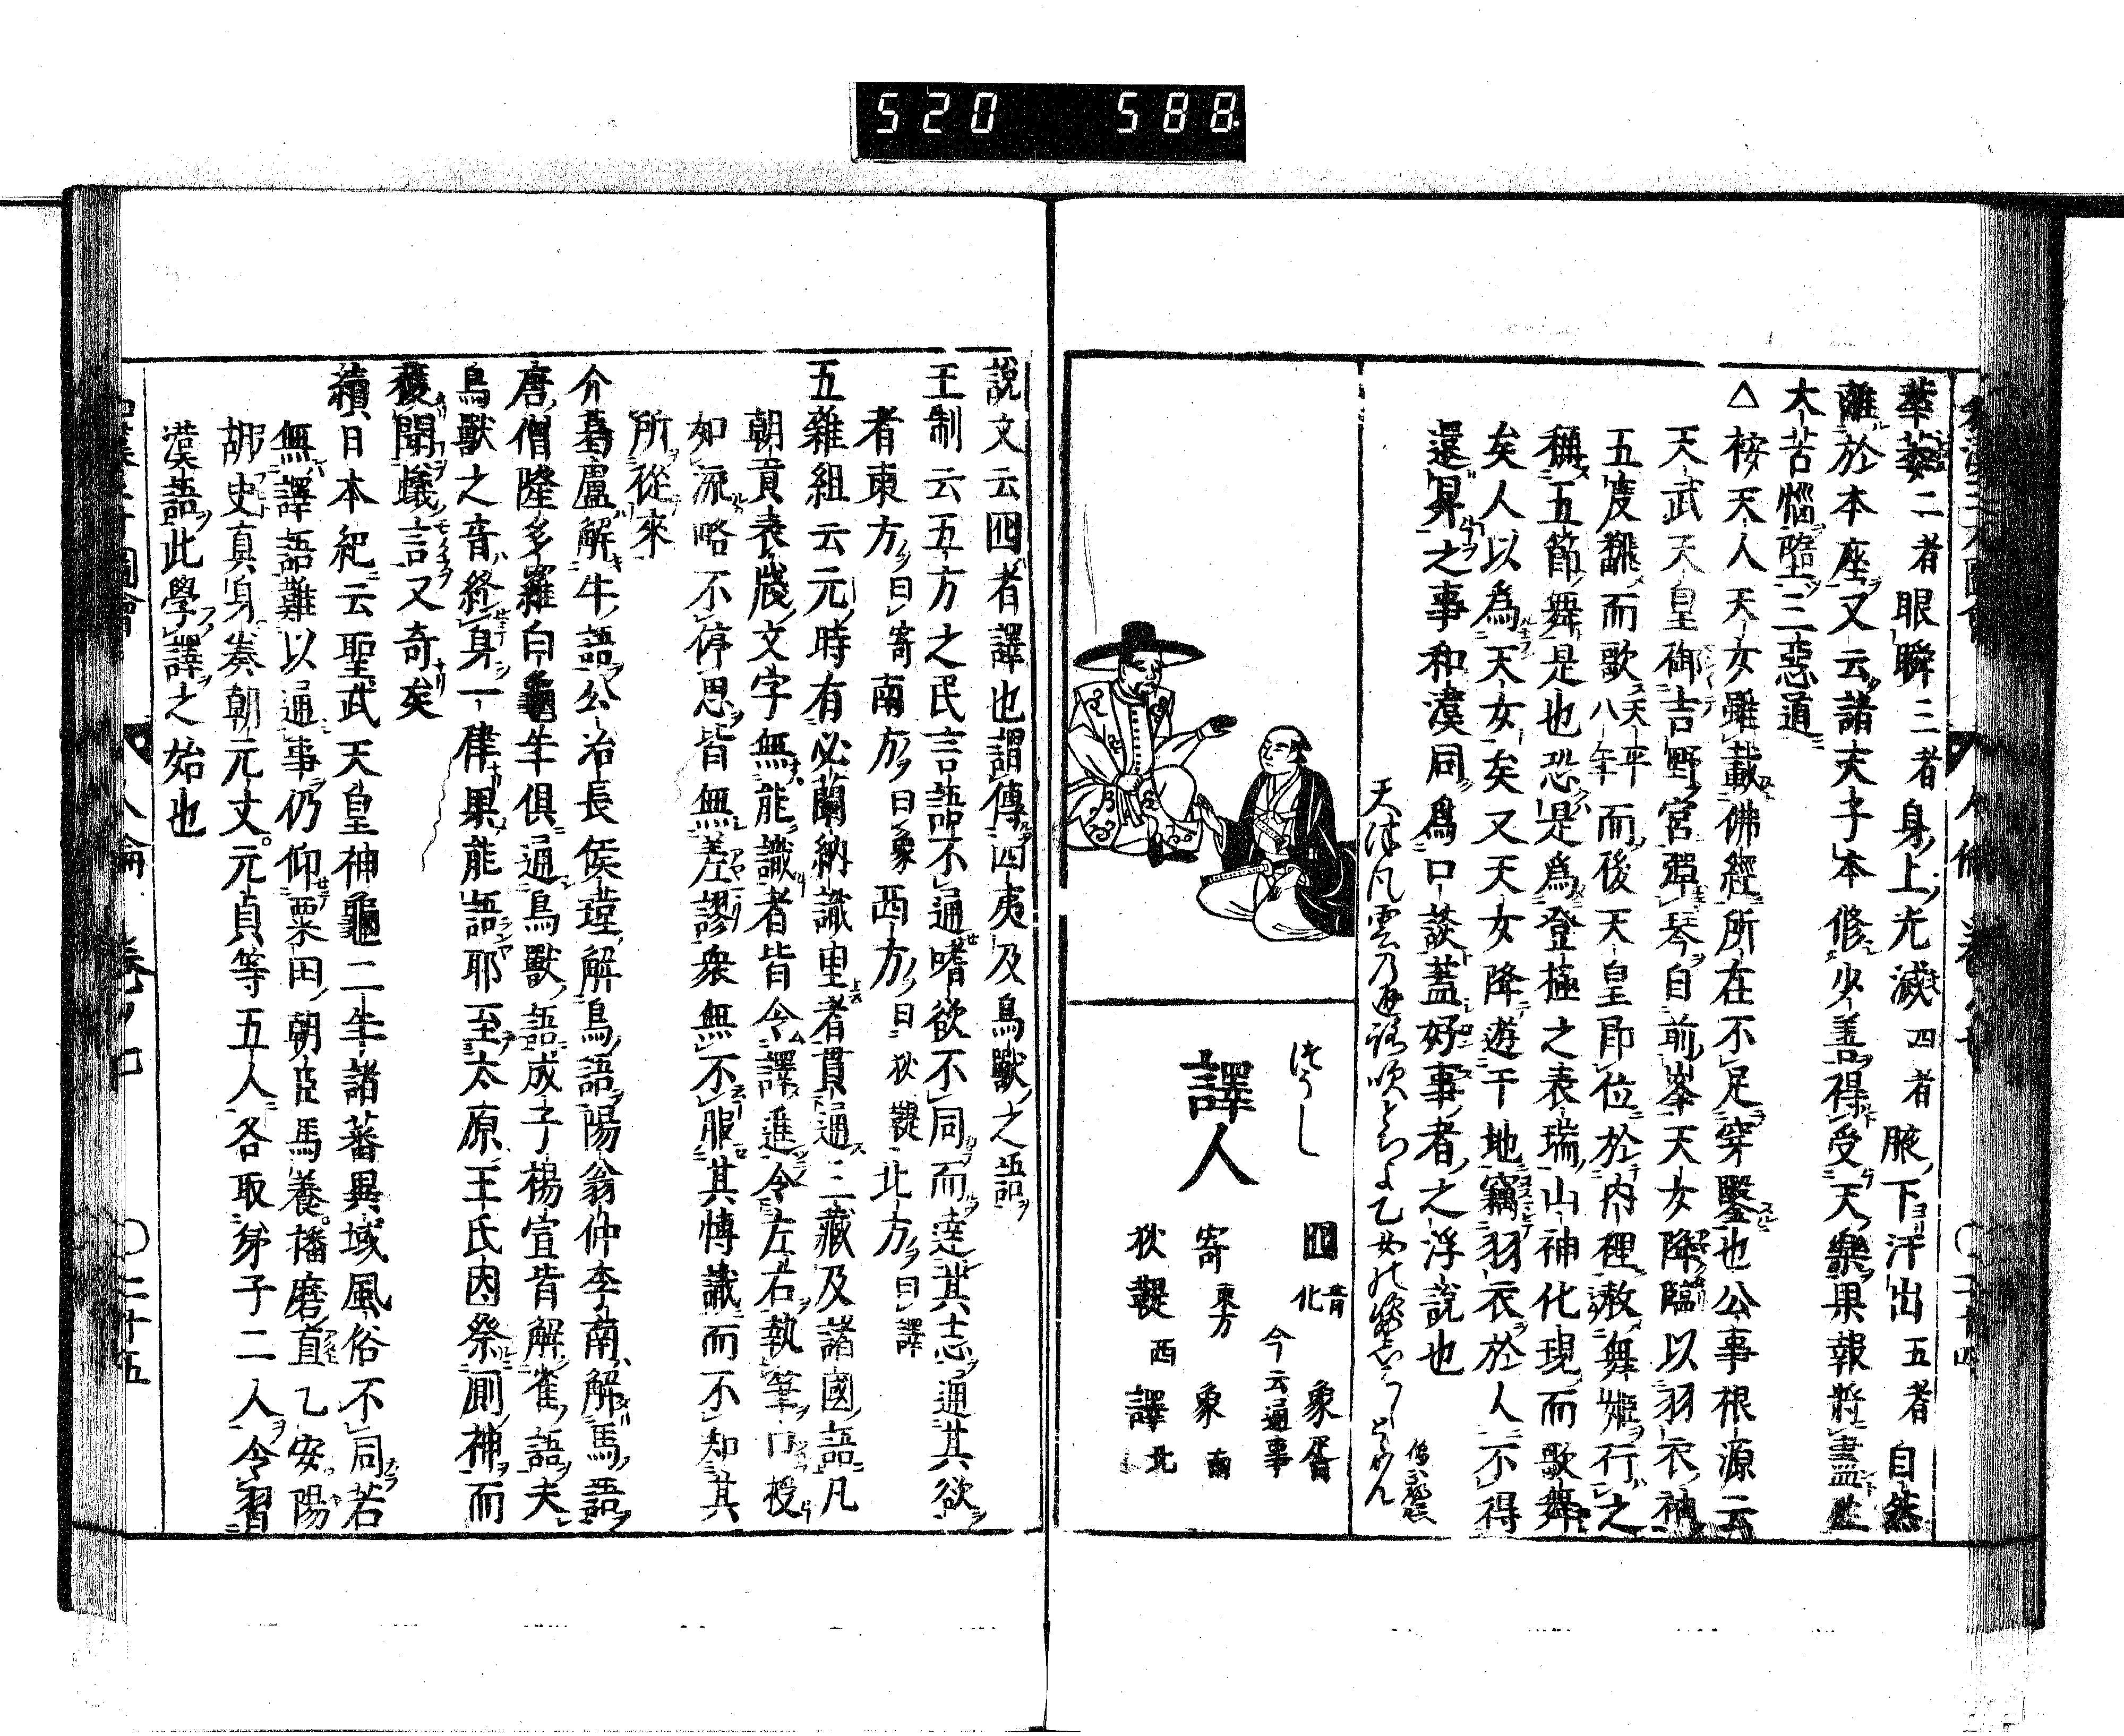 520 588
華萎二者眼瞬三者身上光滅四者腋下汗出五者自然
離於本座又云諸天子本修少善得受天樂果報將盡生
大苦惱墮三惡道
△按天人天女雖載佛經所在不足穿鑿也公事根源云
天武天皇御吉野宮彈琴自前峯天女降臨以羽衣袖
五度飜而歌天平八年而後天皇即位於内裡教舞姬行之
稱五節舞是也恐是爲登極之表瑞山神化現而歌舞
矣人以爲天女矣又天女降遊干地竊羽衣於人不得
還昇之事和漢同爲口談蓋好事者之浮說也
天津風雲乃通路吹とちよ乙女の姿しはしとゝめん
つうし
譯人
囮 音化
象胥
今云通事
寄 東方
象 南
狄鞮 西
譯 北
說文云囮者譯也謂傳四夷及鳥獸之語
王制云五方之民言語不通嗜欲不同而達其志通其欲
者東方曰寄南方曰象西方曰狄鞮北方曰譯
五雜組云元時有必蘭納識里者貫通三藏及諸國語凡
朝貢表牋文字無能識者皆令譯進令左右執筆口授
如流略不停思皆無差謬衆無不服其博識而不知其
所從來
介葛盧解牛語公冶長侯瑾解鳥語陽翁仲李南解馬語
唐僧隆多羅白龜年俱通鳥獸語成子楊宣皆解雀語夫
鳥獸之音終身一律果能語耶至太原王氏因祭厠神而
獲聞蟻言又奇矣
續日本紀云聖武天皇神龜二年諸蕃異域風俗不同若
無譯語難以通事仍仰粟田朝臣馬養播磨直乙安陽
胡史真身秦朝元丈元貞等五人各取弟子二人令習
漢語此學譯之始也
人倫 卷ノ七 〇二十五